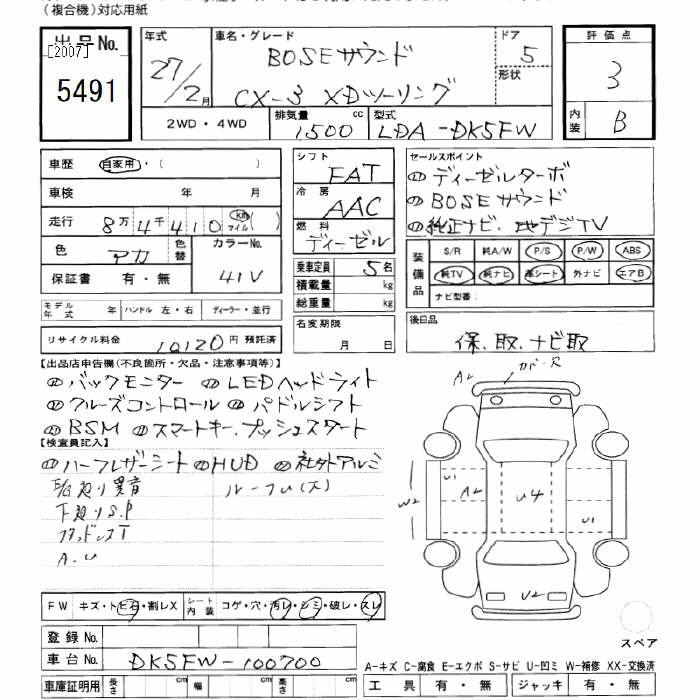 (複合機)対応用紙
出品No.
[2007]
5491
年式
27/2月
車名・グレード
BOSEサウンド
CX-3 XDツーリング
ドア
5
形状
評価点
3
内装
B
2WD・4WD
排気量
1500 cc
型式
LDA-DK5FW
車歴 自家用・( )
車検 年 月
走行 8万4千410 km マイル( )
色 アカ 色替 カラーNo. 41V
保証書 有・無
モデル年式 年 ハンドル 左・右 ディーラー・並行
リサイクル料金 10120円 預託済
シフト FAT
冷房 AAC
燃料 ディーゼル
乗車定員 5名
積載量 kg
総重量 kg
名変期限
月 日
セールスポイント
ディーゼルターボ
BOSEサウンド
純正ナビ、地デジTV
装備品 S/R 純A/W P/S P/W ABS
純TV 純ナビ 革シート 外ナビ エアB
ナビ型番:
後日品
保、取、ナビ取
【出品店申告欄(不良箇所・欠品・注意事項等)】
バックモニター LEDヘッドライト
クルーズコントロール パドルシフト
BSM スマートキー、プッシュスタート
【検査員記入】
ハーフレザーシート HUD 社外アルミ
ルーフU(大)
下廻りS,P
A.U
FW キズ・トビ石・割レX シート内装 コゲ・穴・汚レ・シミ・破レ・スレ
登録No.
車台No. DK5FW-100700
車庫証明用 長さ cm 幅 cm 高さ cm
A2
カバー欠
U1
A2
U4
W2
U1
U2
スペア
A-キズ C-腐食 E-エクボ S-サビ U-凹ミ W-補修 XX-交換済
工具 有・無 ジャッキ 有・無